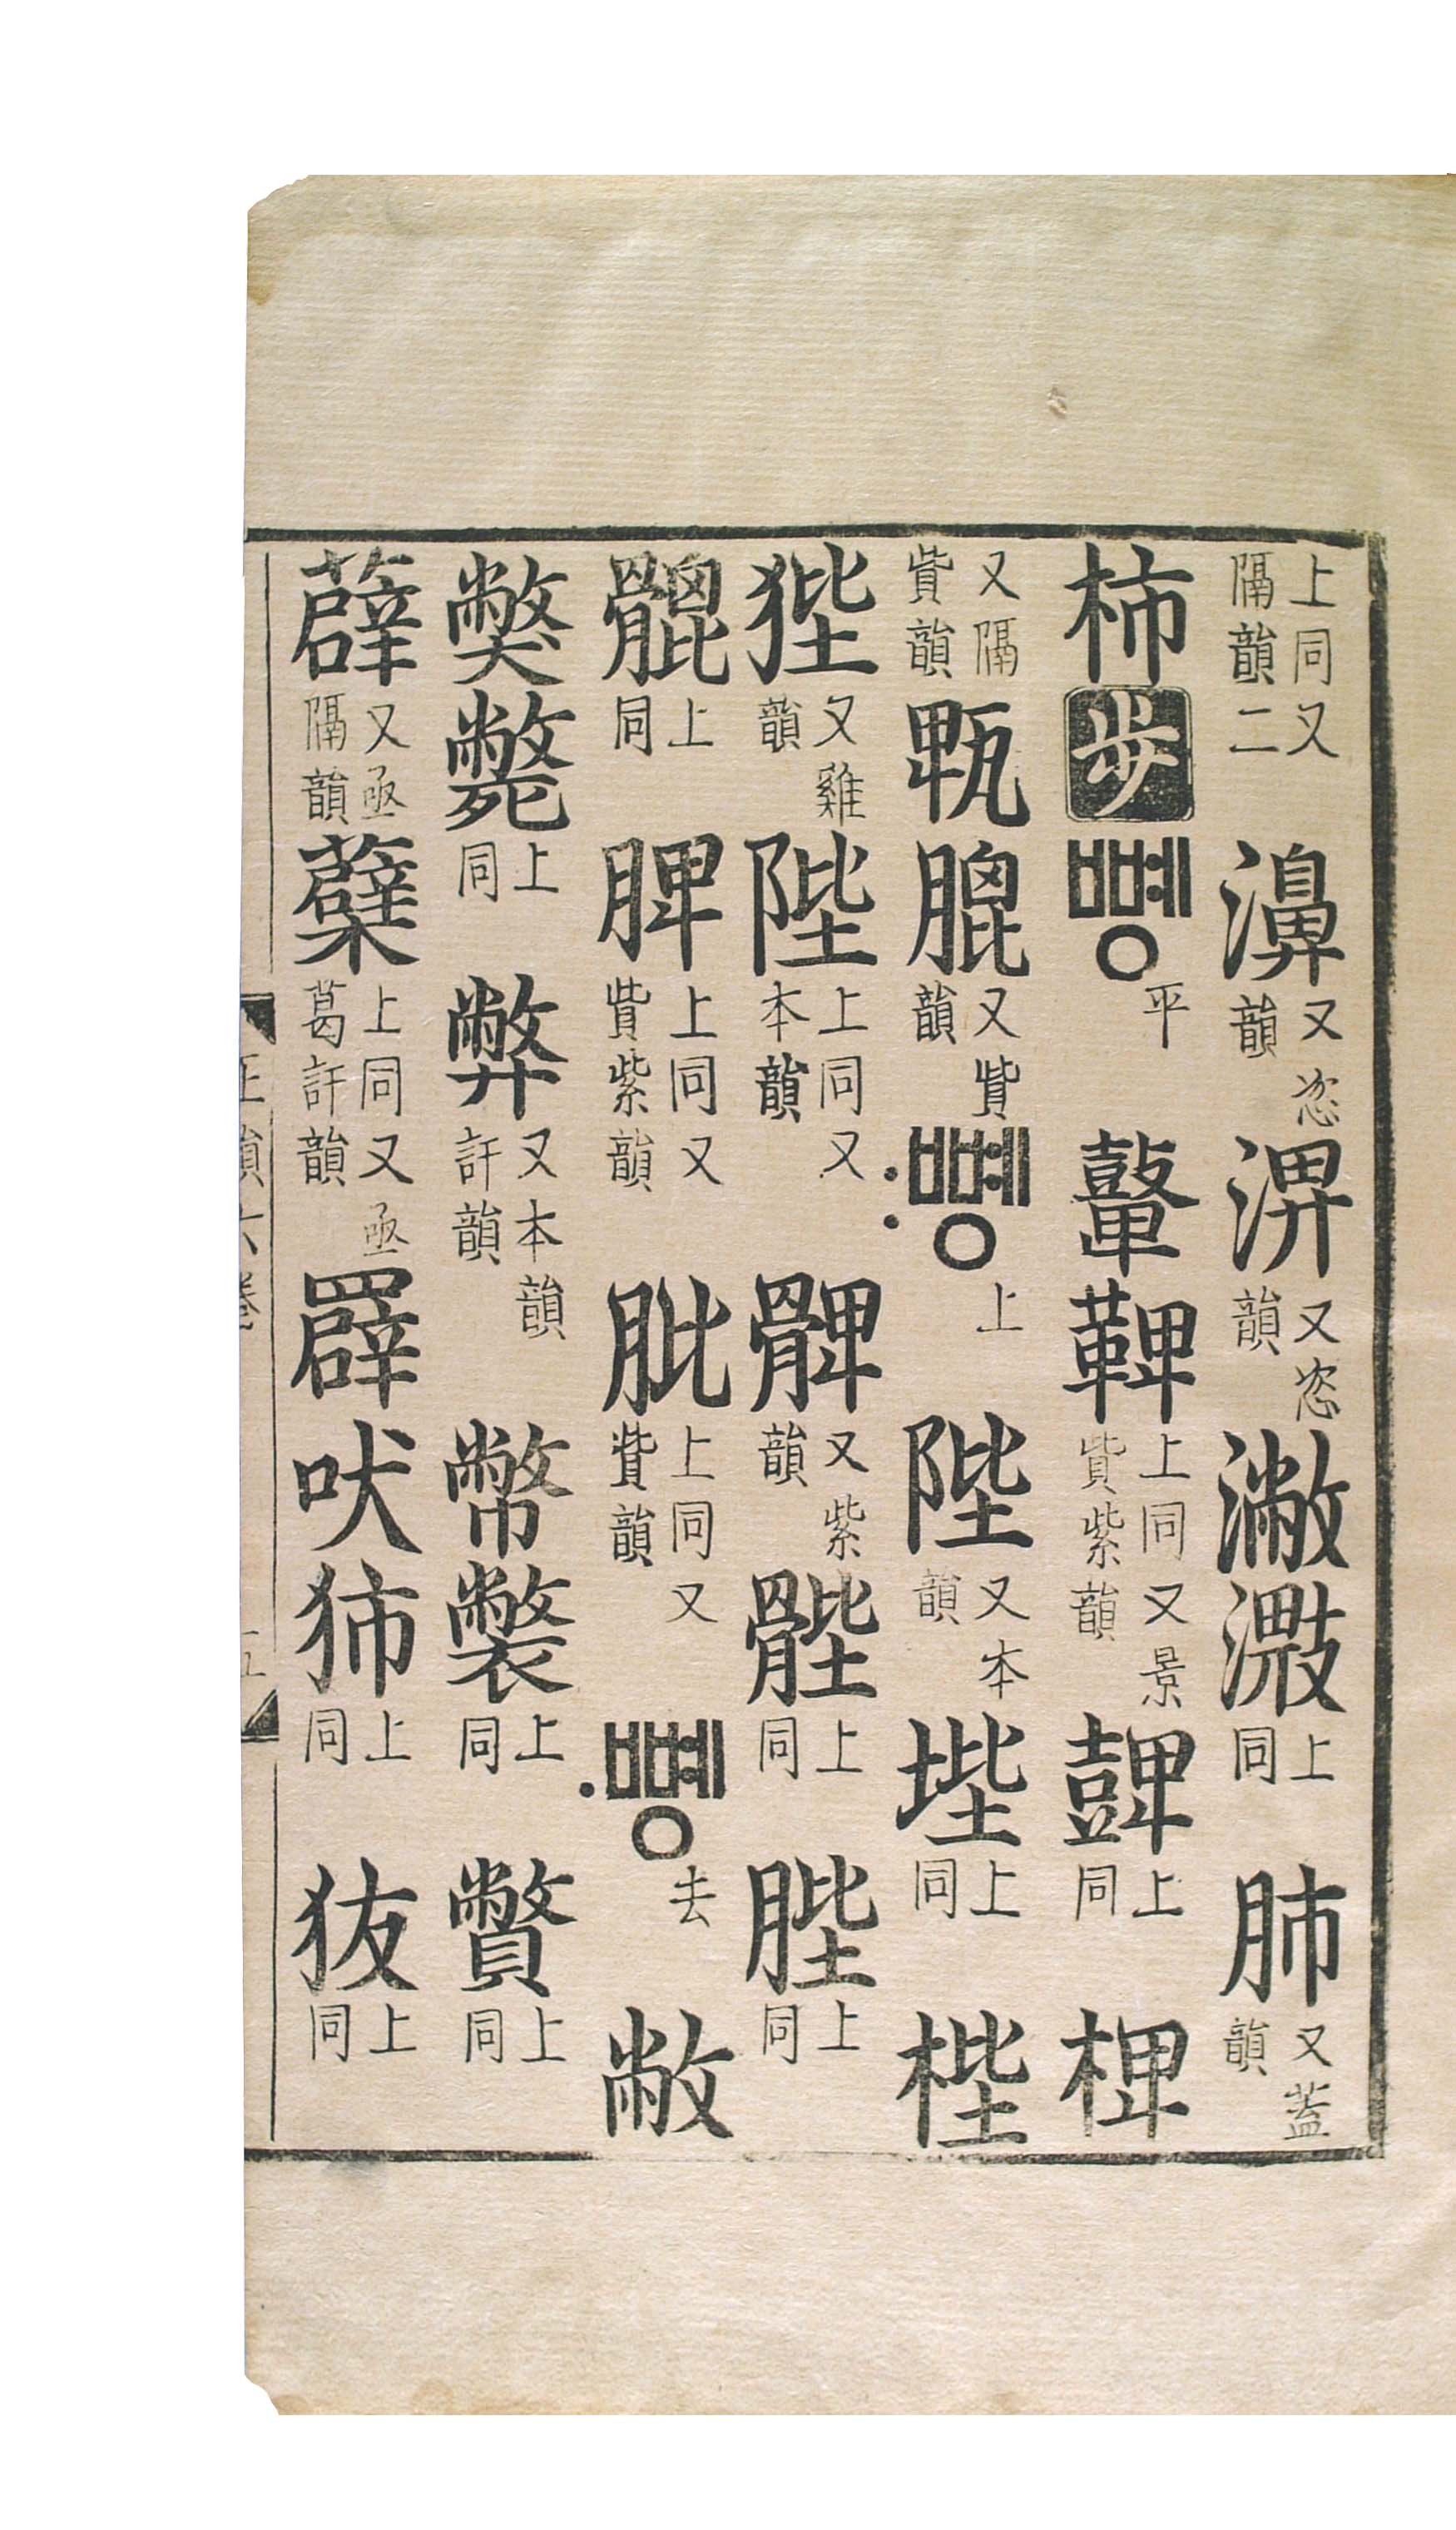 上同又隔韻二 濞 又恣韻 淠 又恣韻 潎 上同 肺 又蓋韻
柿 步 뼹 平 鼙 鞞 上同又景貲紫韻 上同 椑
又隔貲韻 㼰 膍 又貲韻 〯뼹 上 陛 又本韻 上同 梐
狴 又雞韻 陛 上同又本韻 髀 又紫韻 䯗 上同 䏶 上同
上同 脾 上同又貲紫韻 肶 上同又貲韻 〮뼹 去 敝
獘 斃 上同 弊 又本韻訐韻 幣 上同 上同
薜 又亟隔韻 蘗 上同又亟葛訐韻 吠 上同 上同
正韻六卷 五